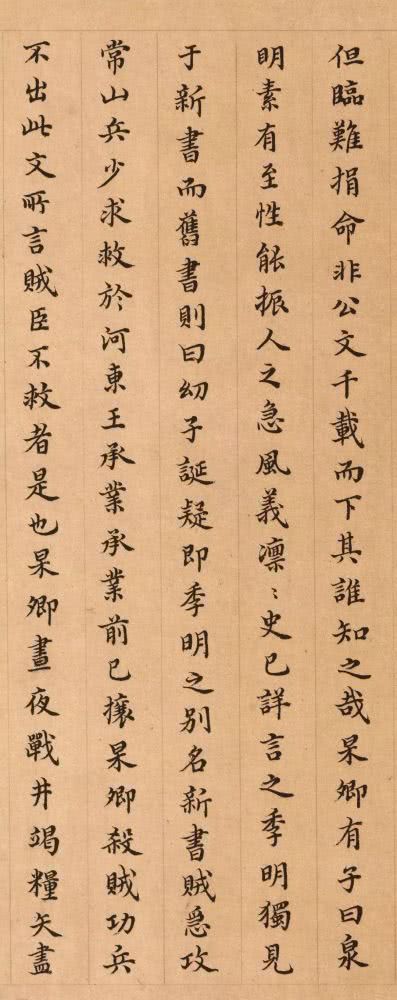 但臨難捐命非公文千載而下其誰知之哉杲卿有子曰泉
明素有至性能振人之急風義凛〻史已詳言之季明獨見
于新書而舊書則曰幼子誕疑即季明之別名新書賊急攻
常山兵少求救於河東王承業承業前已攘杲卿殺賊功兵
不出此文所言賊臣不救者是也杲卿晝夜戰井竭糧矢盡